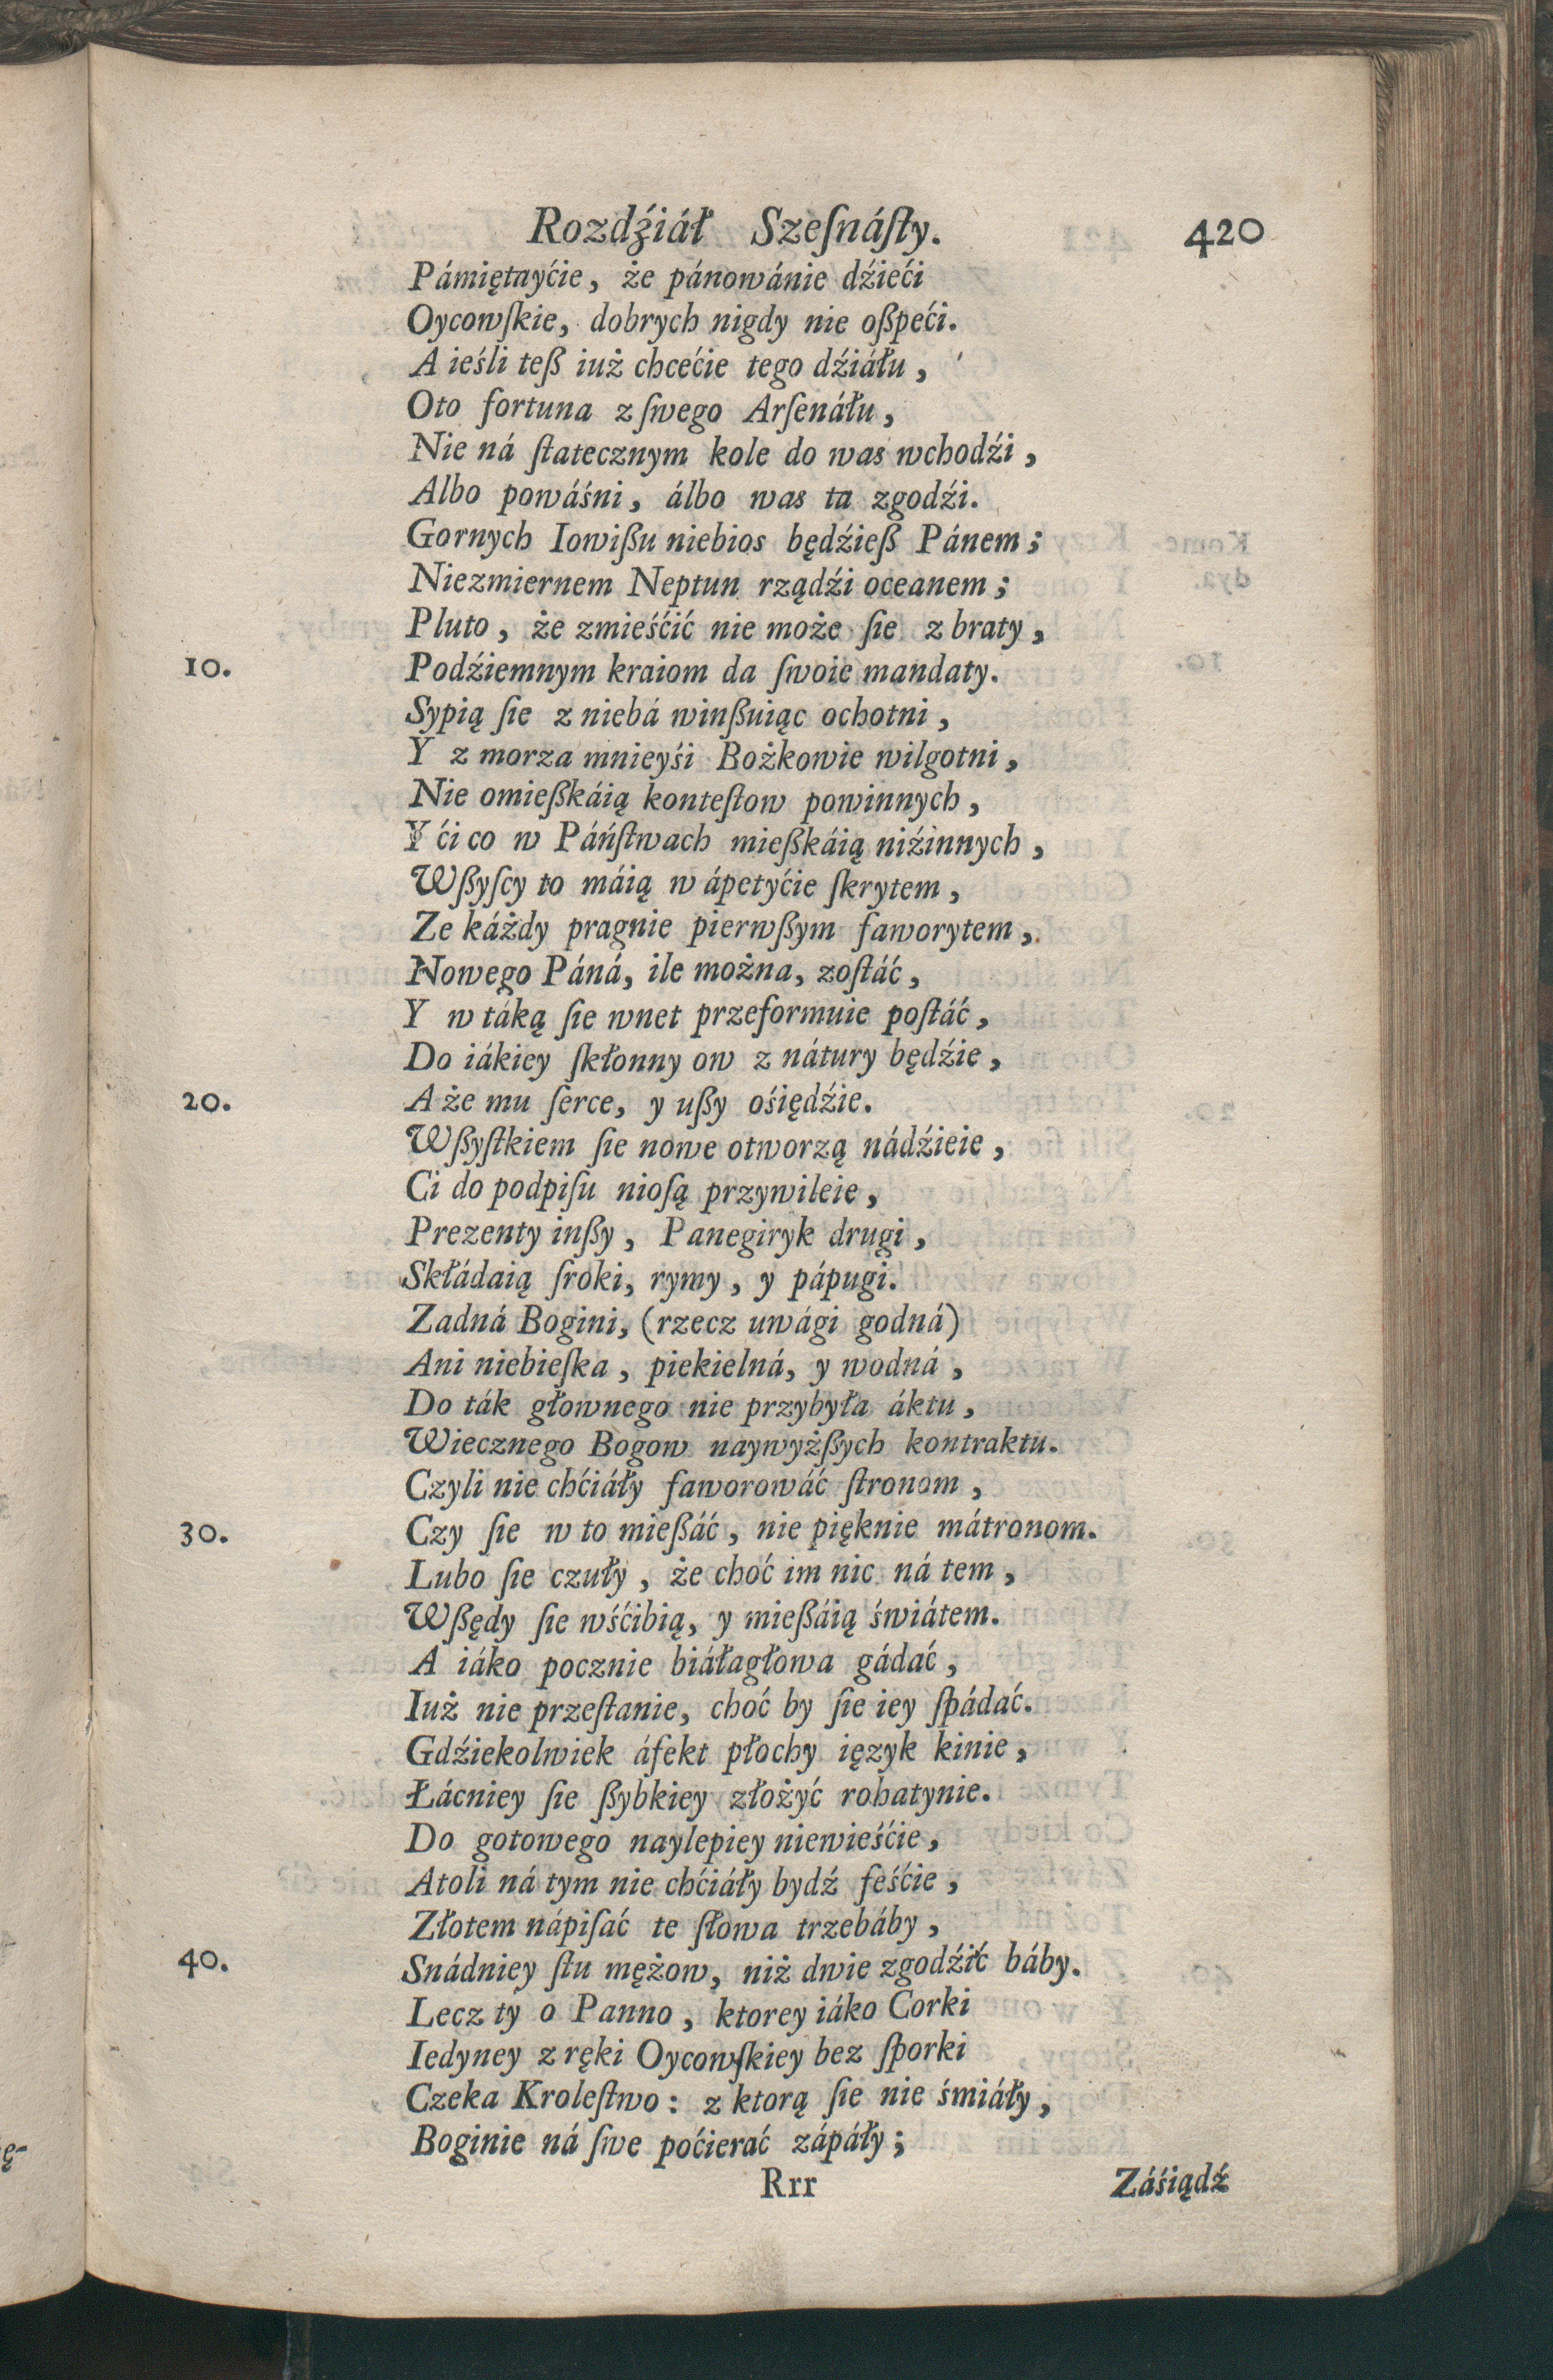 Rozdźiáł Szeſnáſty. 420
Pámiętayćie, że pánowánie dźieći
Oycowſkie, dobrych nigdy nie oßpeći.
A ieśli teß iuż chcećie tego dźiáłu,
Oto fortuna z ſwego Arſenáłu,
Nie ná ſtatecznym kole do was wchodźi,
Albo powáśni, álbo was ta zgodźi.
Gornych Iowißu niebios będźieß Pánem;
Niezmiernem Neptun rządźi oceanem;
Pluto, że zmieśćić nie może ſie z braty,
10. Podźiemnym kraiom da ſwoie mandaty.
Sypią ſie z niebá winßuiąc ochotni,
Y z morza mnieyśi Bożkowie wilgotni,
Nie omießkáią konteſtow powinnych,
Y ći co w Páńſtwach mießkáią niźinnych,
Wßyſcy to máią w ápetyćie ſkrytem,
Ze káżdy pragnie pierwßym faworytem,
Nowego Páná, ile można, zoſtáć,
Y w táką ſie wnet przeformuie poſtáć,
Do iákiey ſkłonny ow z nátury będźie,
20. Aże mu ſerce, y ußy ośiędźie.
Wßyſtkiem ſie nowe otworzą nádźieie,
Ci do podpiſu nioſą przywileie,
Prezenty inßy, Panegiryk drugi,
Skłádaią ſroki, rymy, y pápugi.
Zadná Bogini, (rzecz uwági godná)
Ani niebieſka, piekielná, y wodná,
Do ták głownego nie przybyła áktu,
Wiecznego Bogow naywyżßych kontraktu.
Czyli nie chćiáły faworowáć ſtronom,
30. Czy ſie w to mießáć, nie pięknie mátronom.
Lubo ſie czuły, że choć im nic ná tem,
Wßędy ſie wśćibią, y mießáią świátem.
A iáko pocznie biáłagłowa gádać,
Iuż nie przeſtanie, choć by ſie iey ſpádać.
Gdźiekolwiek áfekt płochy ięzyk kinie,
Łácniey ſie ßybkiey złożyć rohatynie.
Do gotowego naylepiey niewieśćie,
Atoli ná tym nie chćiáły bydź feśćie,
Złotem nápiſać te ſłowa trzebáby,
40. Snádniey ſtu mężow, niż dwie zgodźić báby.
Lecz ty o Panno, ktorey iáko Corki
Iedyney z ręki Oycowſkiey bez ſporki
Czeka Kroleſtwo: z ktorą ſie nie śmiáły,
Boginie ná ſwe poćierać zápáły;
Rrr Záśiądź